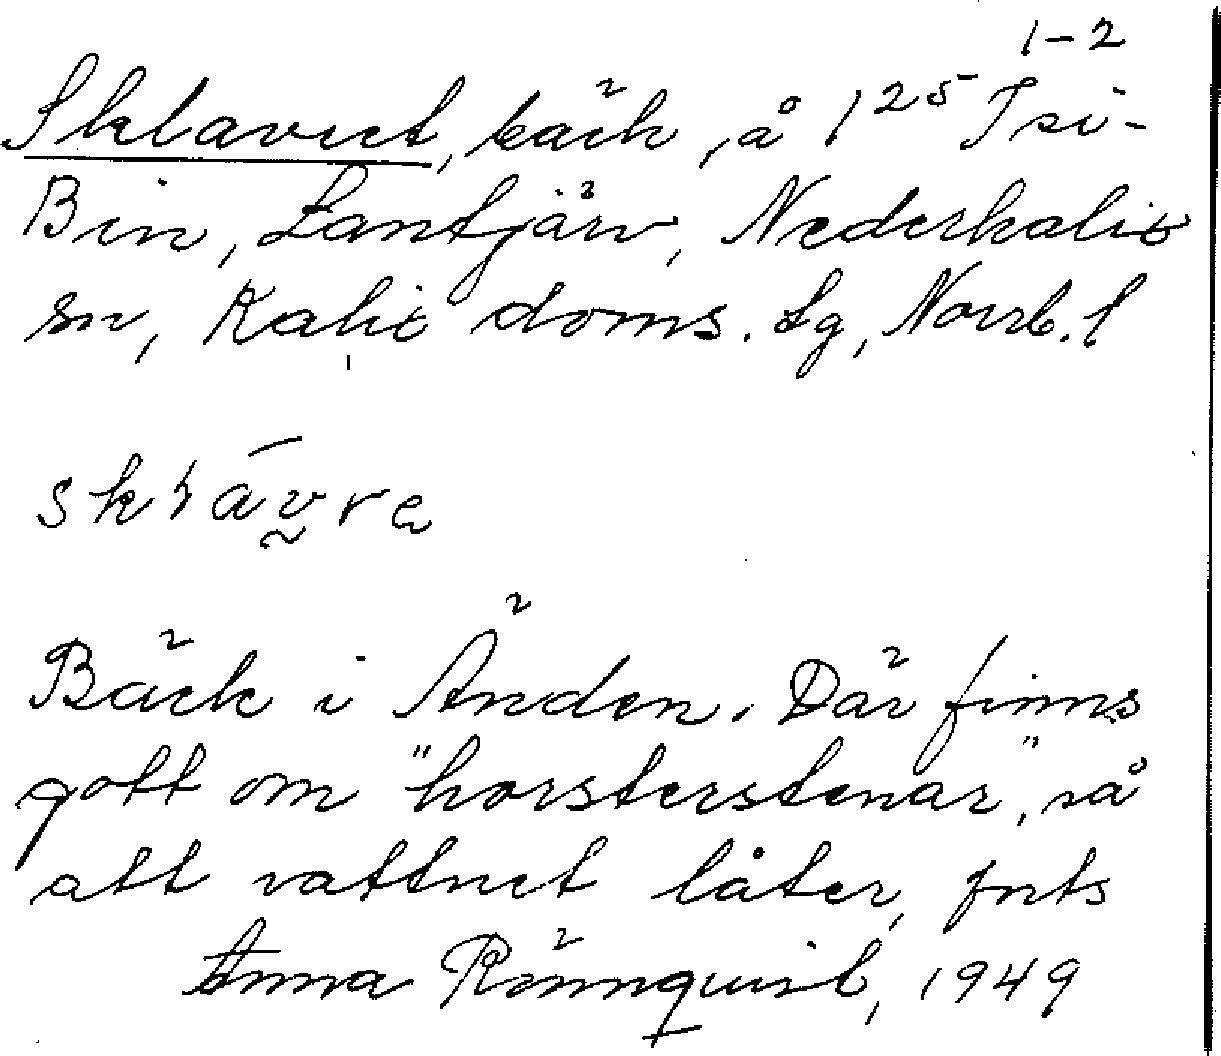 1-2
Sklavret, bäck, å 125 Tsi-
Bin, Lantjärv, Nederkalix
sn, Kalix doms. lg, Norrb. l
Bäck i Änden. Där finns
gott om "horsterstenar", så
att vattnet låter, forts
Anna Rönnquist, 1949